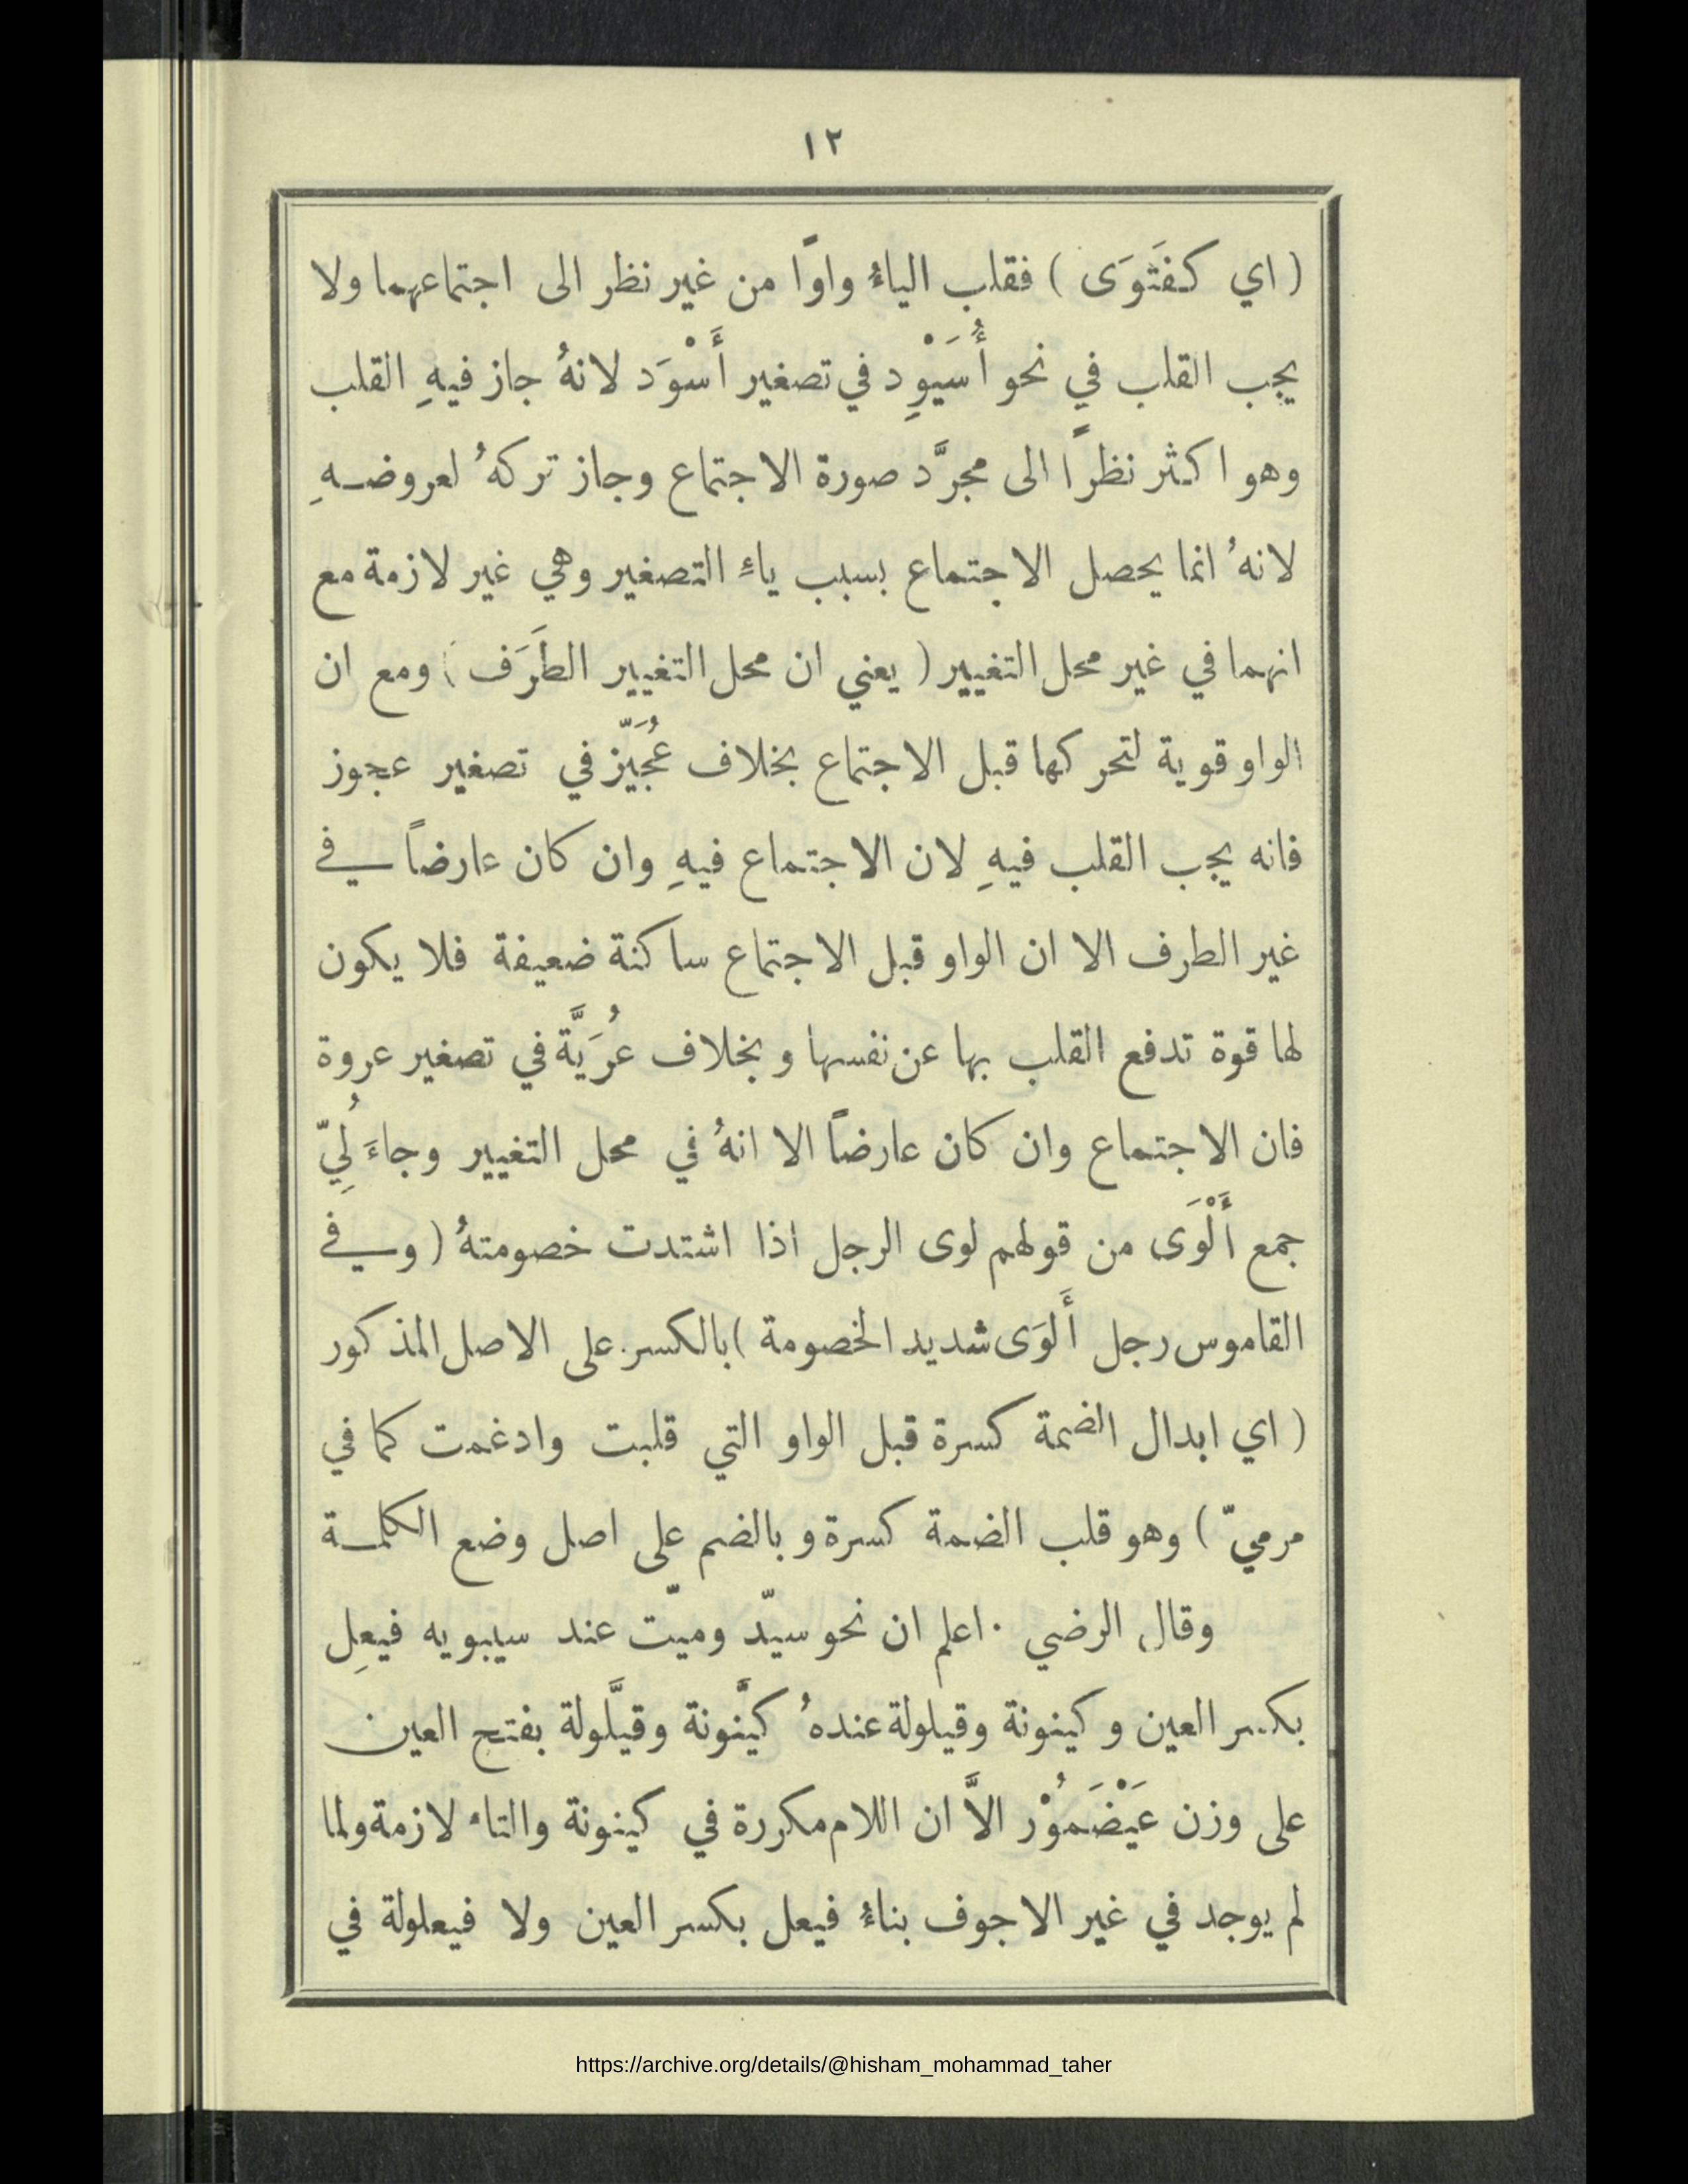 ١٢
( اي كفَتْوَى ) فقلب الياءُ واوًا من غير نظر الى اجتماعهما ولا
يجب القلب في نحو أُسَيْوِد في تصغير أَسْوَد لانهُ جاز فيهِ القلب
وهو اكثر نظرًا الى مجرَّد صورة الاجتماع وجاز تركهُ لعروضـهِ
لانهُ انما يحصل الاجتماع بسبب ياءِ التصغير وهي غير لازمة مع
انهما في غير محل التغيير ( يعني ان محل التغيير الطَرَف ) ومع ان
الواو قوية لتحركها قبل الاجتماع بخلاف عُجَيّز في تصغير عجوز
فانه يجب القلب فيهِ لان الاجتماع فيهِ وان كان عارضاً في
غير الطرف الا ان الواو قبل الاجتماع ساكنة ضعيفة فلا يكون
لها قوة تدفع القلب بها عن نفسها وبخلاف عُرَيَّة في تصغير عروة
فان الاجتماع وان كان عارضاً الا انهُ في محل التغيير وجاءَ لُِيّ
جمع أَلْوَى من قولهم لوى الرجل اذا اشتدت خصومتهُ ( وفي
القاموس رجل أَلوَى شديد الخصومة ) بالكسر على الاصل المذكور
( اي ابدال الضمة كسرة قبل الواو التي قلبت وادغمت كما في
مرميّ ) وهو قلب الضمة كسرة وبالضم على اصل وضع الكلمـة
وقال الرضي ٠ اعلم ان نحو سيّد وميّت عند سيبويه فيعِل
بكسر العين وكينونة وقيلولة عندهُ كيَّنونة وقيَّلولة بفتح العين
على وزن عَيْضَمُوْر الاَّ ان اللام مكررة في كينونة والتاء لازمة ولما
لم يوجد في غير الاجوف بناءُ فيعل بكسر العين ولا فيعلولة في
https://archive.org/details/@hisham_mohammad_taher